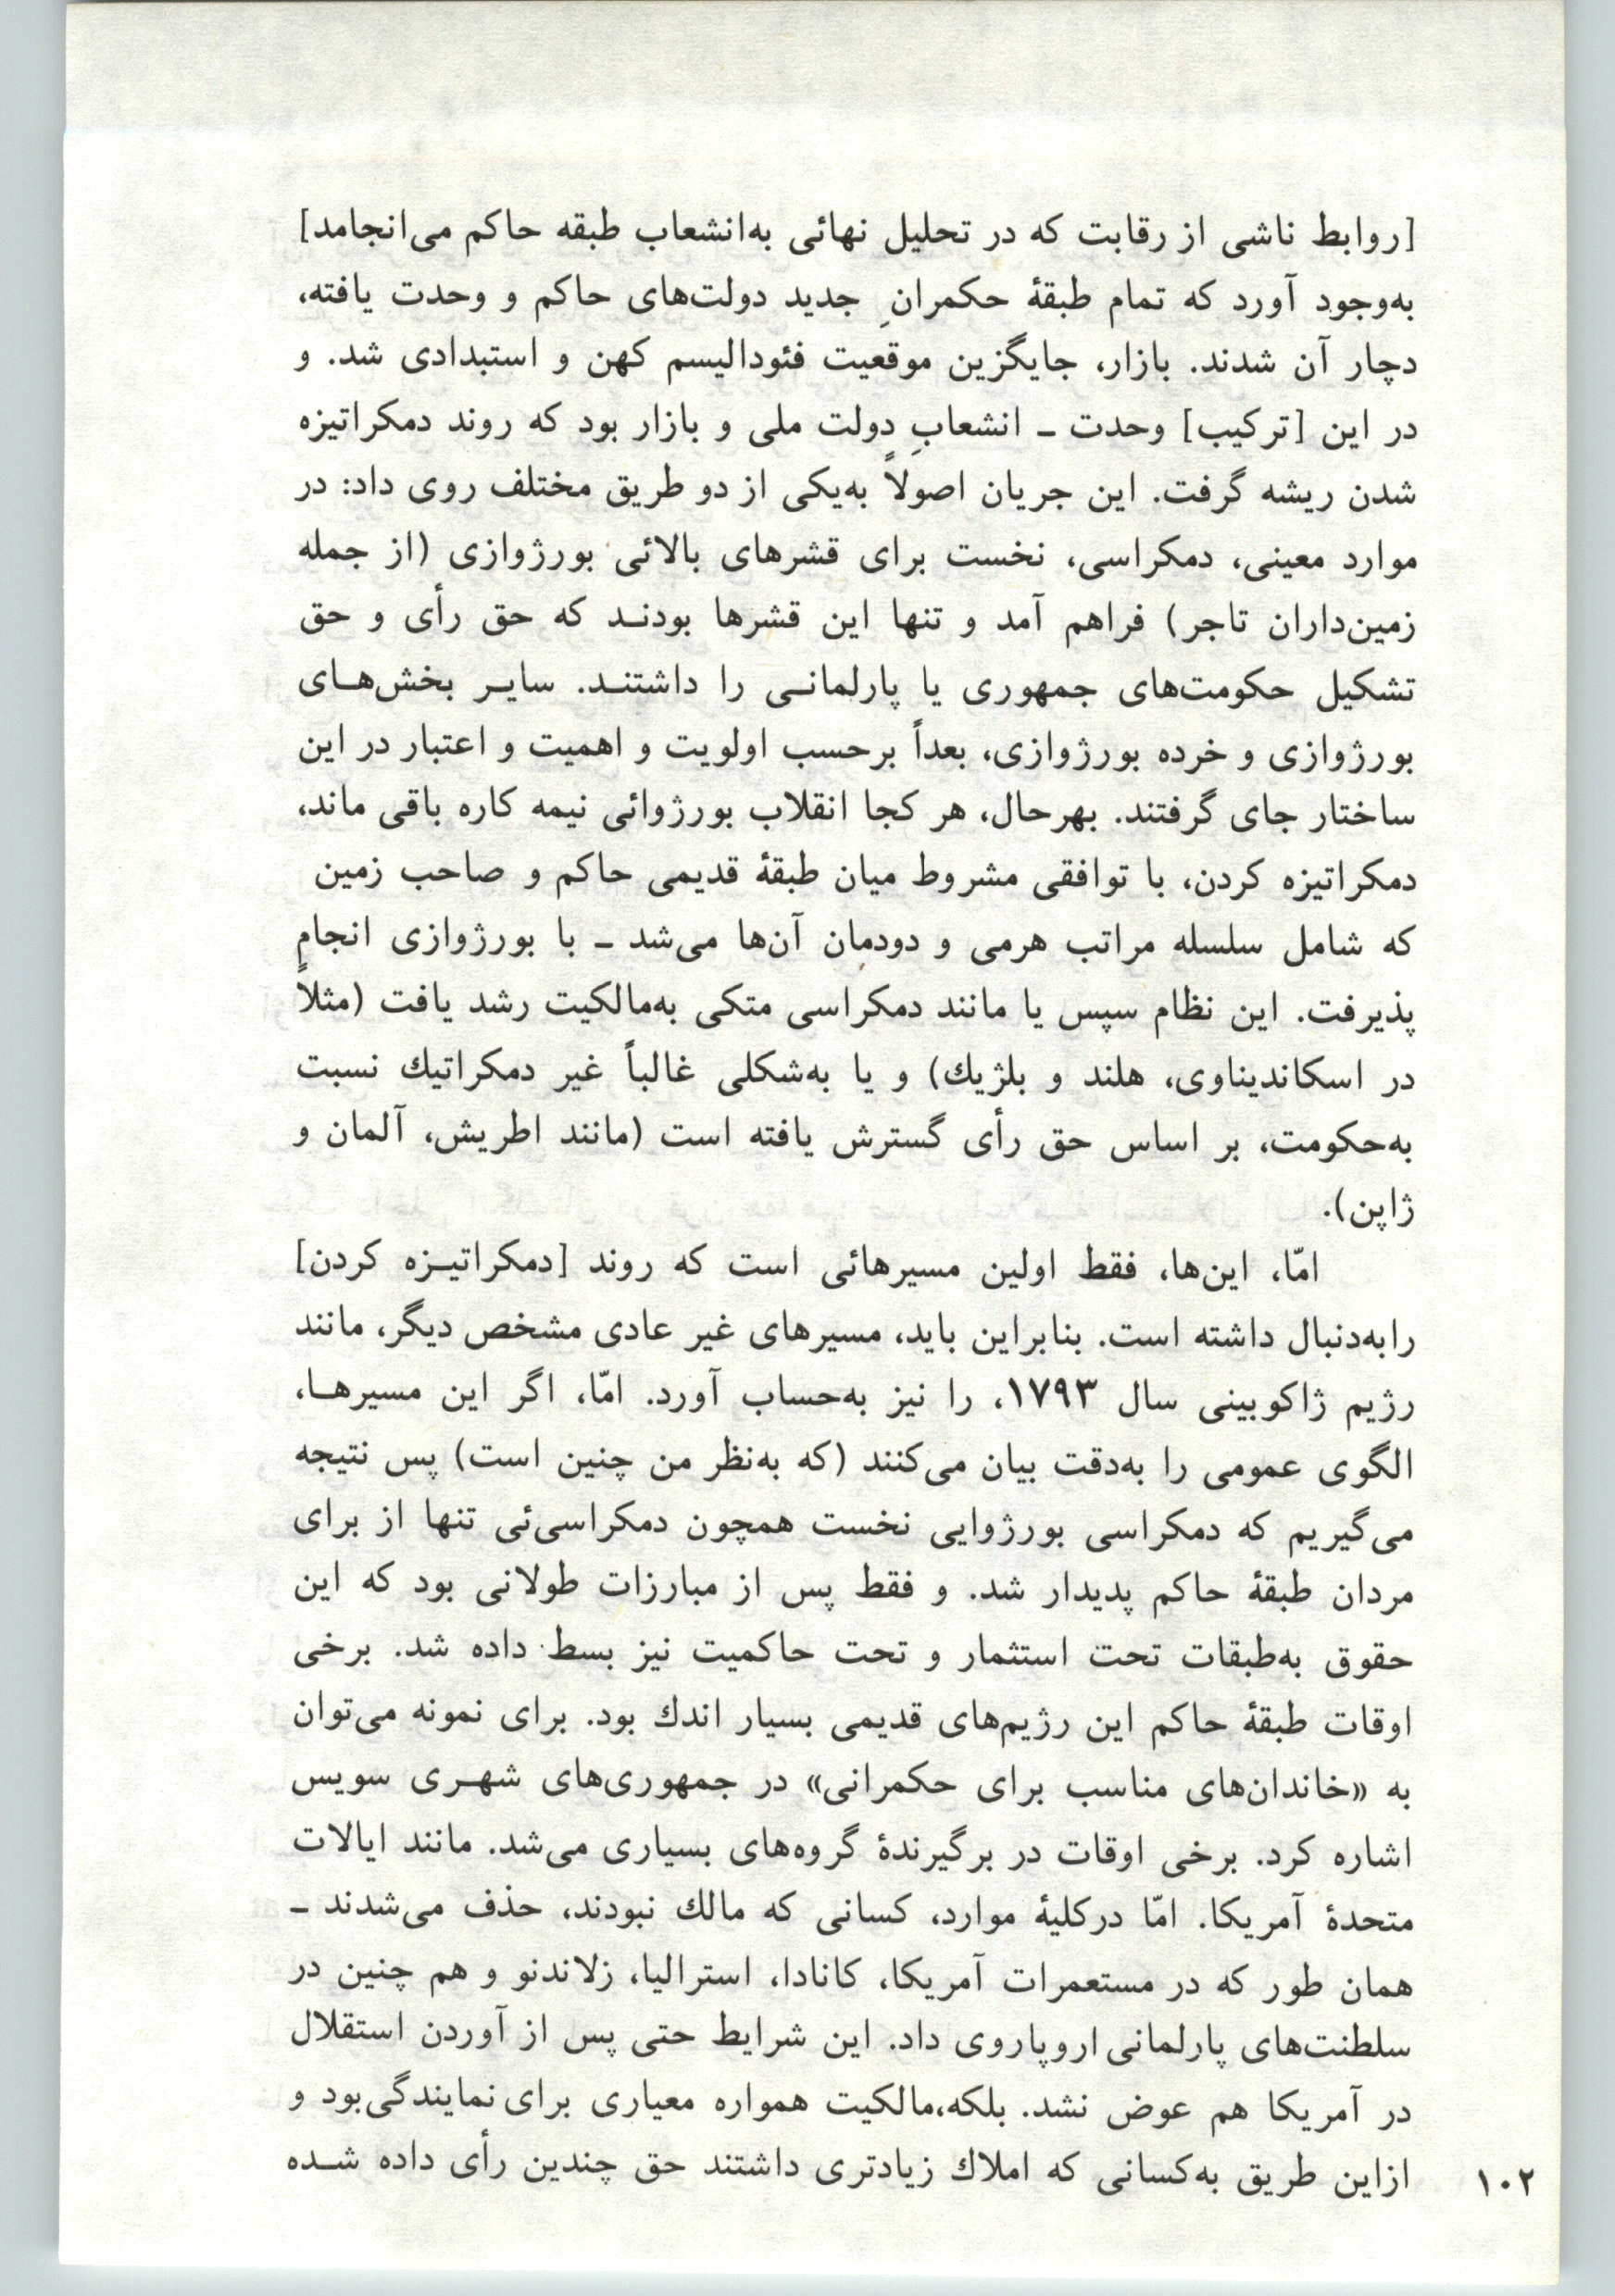 [روابط ناشی از رقابت که در تحلیل نهائی به‌انشعاب طبقه حاکم می‌انجامد]
به‌وجود آورد که تمام طبقهٔ حکمرانِ جدید دولت‌های حاکم و وحدت یافته،
دچار آن شدند. بازار، جایگزین موقعیت فئودالیسم کهن و استبدادی شد. و
در این [ترکیب] وحدت ــ انشعابِ دولت ملی و بازار بود که روند دمکراتیزه
شدن ریشه گرفت. این جریان اصولاً به‌یکی از دو طریق مختلف روی داد: در
موارد معینی، دمکراسی، نخست برای قشرهای بالائی بورژوازی (از جمله
زمین‌داران تاجر) فراهم آمد و تنها این قشرها بودنـد که حق رأی و حق
تشکیل حکومت‌های جمهوری یا پارلمانـی را داشتنـد. سایـر بخش‌هـای
بورژوازی و خرده بورژوازی، بعداً برحسب اولویت و اهمیت و اعتبار در این
ساختار جای گرفتند. بهرحال، هر کجا انقلاب بورژوائی نیمه کاره باقی ماند،
دمکراتیزه کردن، با توافقی مشروط میان طبقهٔ قدیمی حاکم و صاحب زمین
که شامل سلسله مراتب هرمی و دودمان آن‌ها می‌شد ــ با بورژوازی انجام
پذیرفت. این نظام سپس یا مانند دمکراسی متکی به‌مالکیت رشد یافت (مثلاً
در اسکاندیناوی، هلند و بلژیك) و یا به‌شکلی غالباً غیر دمکراتیك نسبت
به‌حکومت، بر اساس حق رأی گسترش یافته است (مانند اطریش، آلمان و
ژاپن).
امّا، این‌ها، فقط اولین مسیرهائی است که روند [دمکراتیـزه کردن]
رابه‌دنبال داشته است. بنابراین باید، مسیرهای غیر عادی مشخص دیگر، مانند
رژیم ژاکوبینی سال ۱۷۹۳، را نیز به‌حساب آورد. امّا، اگر این مسیرهـا،
الگوی عمومی را به‌دقت بیان می‌کنند (که به‌نظر من چنین است) پس نتیجه
می‌گیریم که دمکراسی بورژوایی نخست همچون دمکراسی‌ئی تنها از برای
مردان طبقهٔ حاکم پدیدار شد. و فقط پس از مبارزات طولانی بود که این
حقوق به‌طبقات تحت استثمار و تحت حاکمیت نیز بسط داده شد. برخی
اوقات طبقهٔ حاکم این رژیم‌های قدیمی بسیار اندك بود. برای نمونه می‌توان
به «خاندان‌های مناسب برای حکمرانی» در جمهوری‌های شهـری سویس
اشاره کرد. برخی اوقات در برگیرندهٔ گروه‌های بسیاری می‌شد. مانند ایالات
متحدهٔ آمریکا. امّا درکلیهٔ موارد، کسانی که مالك نبودند، حذف می‌شدند ــ
همان طور که در مستعمرات آمریکا، کانادا، استرالیا، زلاندنو و هم چنین در
سلطنت‌های پارلمانی اروپاروی داد. این شرایط حتی پس از آوردن استقلال
در آمریکا هم عوض نشد. بلکه،مالکیت همواره معیاری برای نمایندگی‌بود و
ازاین طریق به‌کسانی که املاك زیادتری داشتند حق چندین رأی داده شـده
۱۰۲